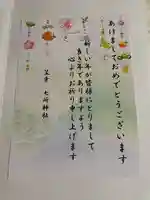 あけましておめでとうございます
新しい年が皆様にとりまして
良き年でありますよう
心よりお祈り申し上げます
七所神社